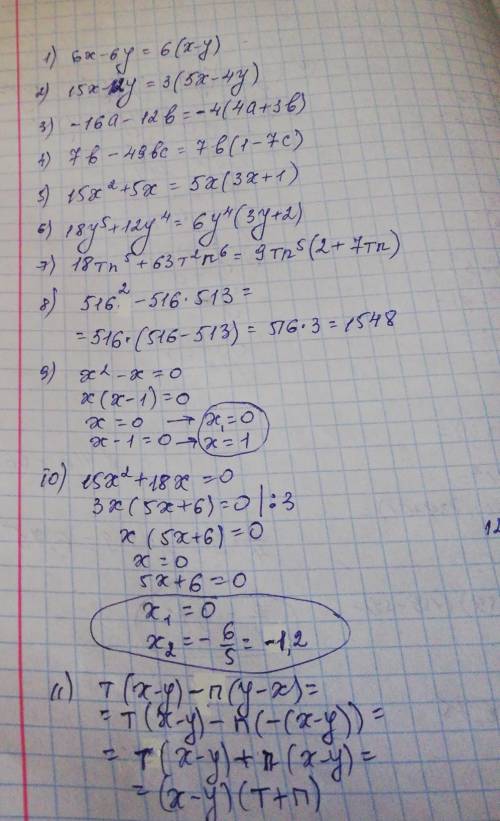 1) 6x-6y = 6(x-y)
2) 15x-12y = 3(5x-4y)
3) -16a-12b = -4(4a+3b)
4) 7b-49bc = 7b(1-7c)
5) 15x²+5x = 5x(3x+1)
6) 18y⁵+12y⁴ = 6y⁴(3y+2)
7) 18тп⁵+63т²п⁶ = 9тп⁵(2+7тп)
8) 516² - 516·513 =
= 516·(516-513) = 516·3 = 1548
9) x²-x=0
x(x-1)=0
x=0 → x₁=0
x-1=0 → x=1
10) 15x²+18x=0
3x(5x+6)=0 |:3
x(5x+6)=0
12
x=0
5x+6=0
x₁=0
x₂=-6/5=-1,2
11) т(x-y)-п(y-x)=
=т(x-y)-п(-(x-y))=
=т(x-y)+п(x-y)=
=(x-y)(т+п)